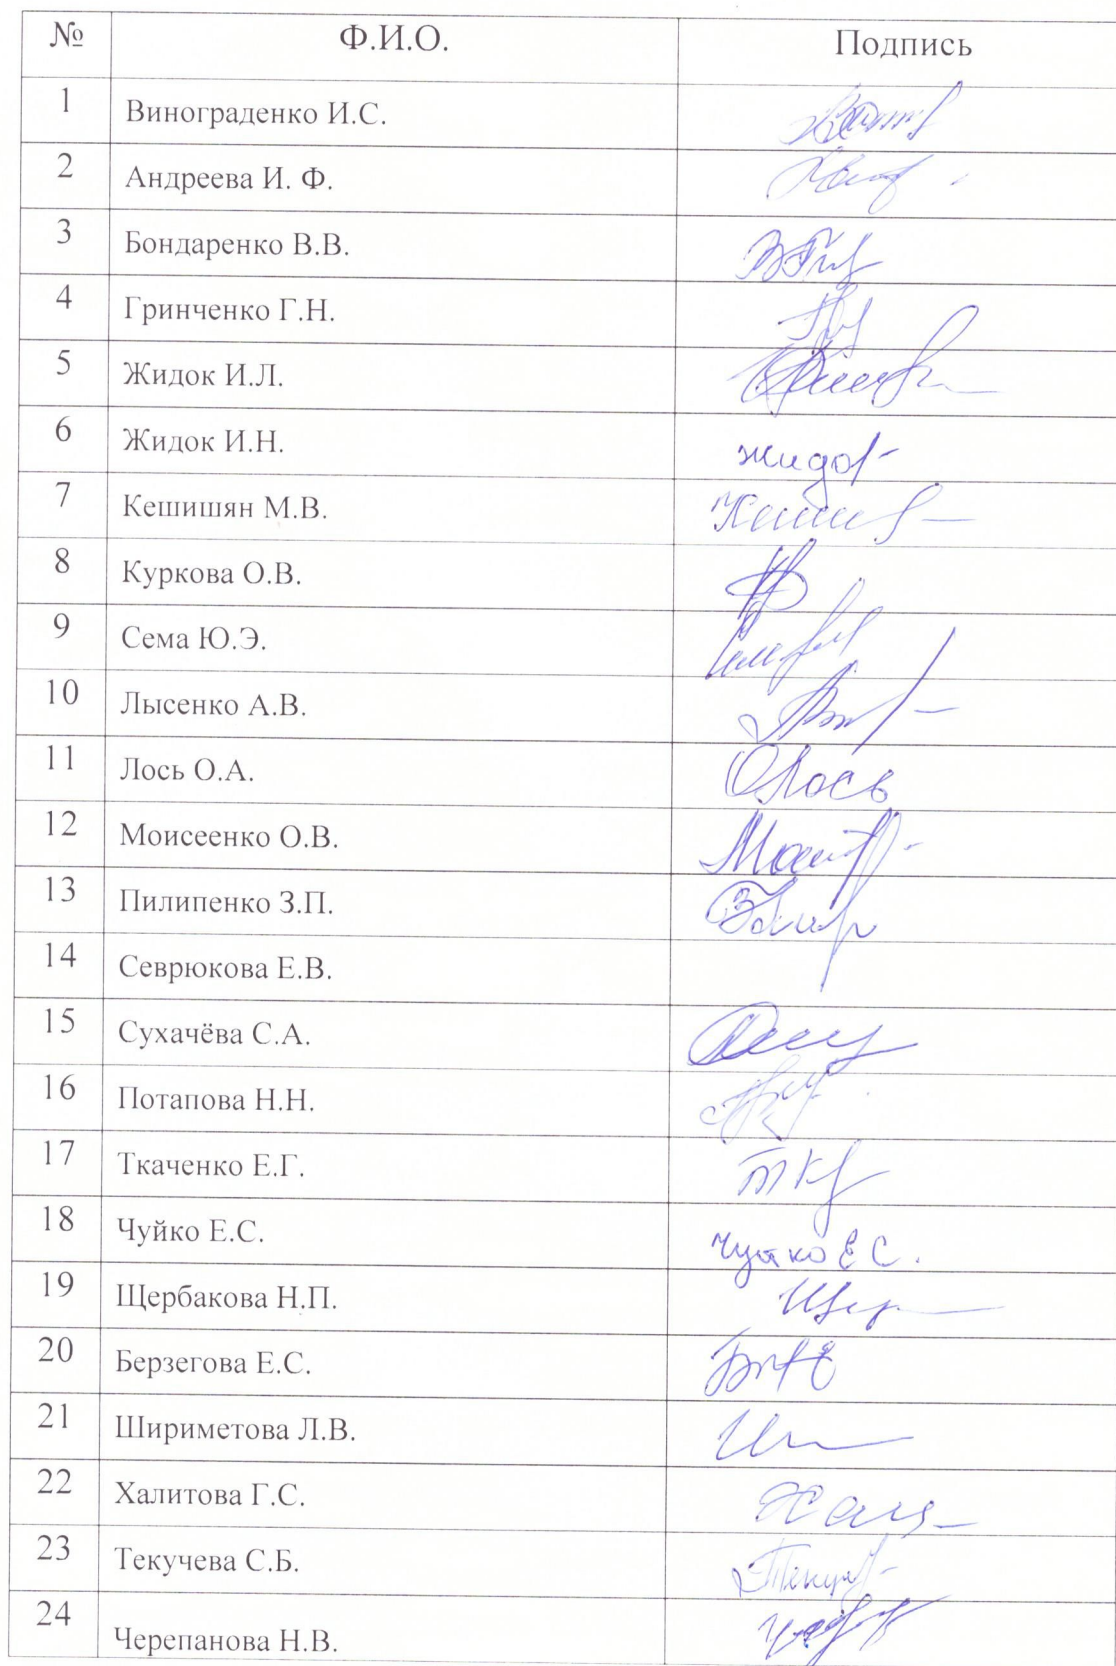 № Ф.И.О. Подпись
1 Винограденко И.С.
2 Андреева И. Ф.
3 Бондаренко В.В.
4 Гринченко Г.Н.
5 Жидок И.Л.
6 Жидок И.Н.
7 Кешишян М.В.
8 Куркова О.В.
9 Сема Ю.Э.
10 Лысенко А.В.
11 Лось О.А. ОЛось
12 Моисеенко О.В.
13 Пилипенко З.П.
14 Севрюкова Е.В.
15 Сухачёва С.А.
16 Потапова Н.Н.
17 Ткаченко Е.Г.
18 Чуйко Е.С. Чуйко Е С.
19 Щербакова Н.П.
20 Берзегова Е.С.
21 Шириметова Л.В.
22 Халитова Г.С.
23 Текучева С.Б.
24 Черепанова Н.В.